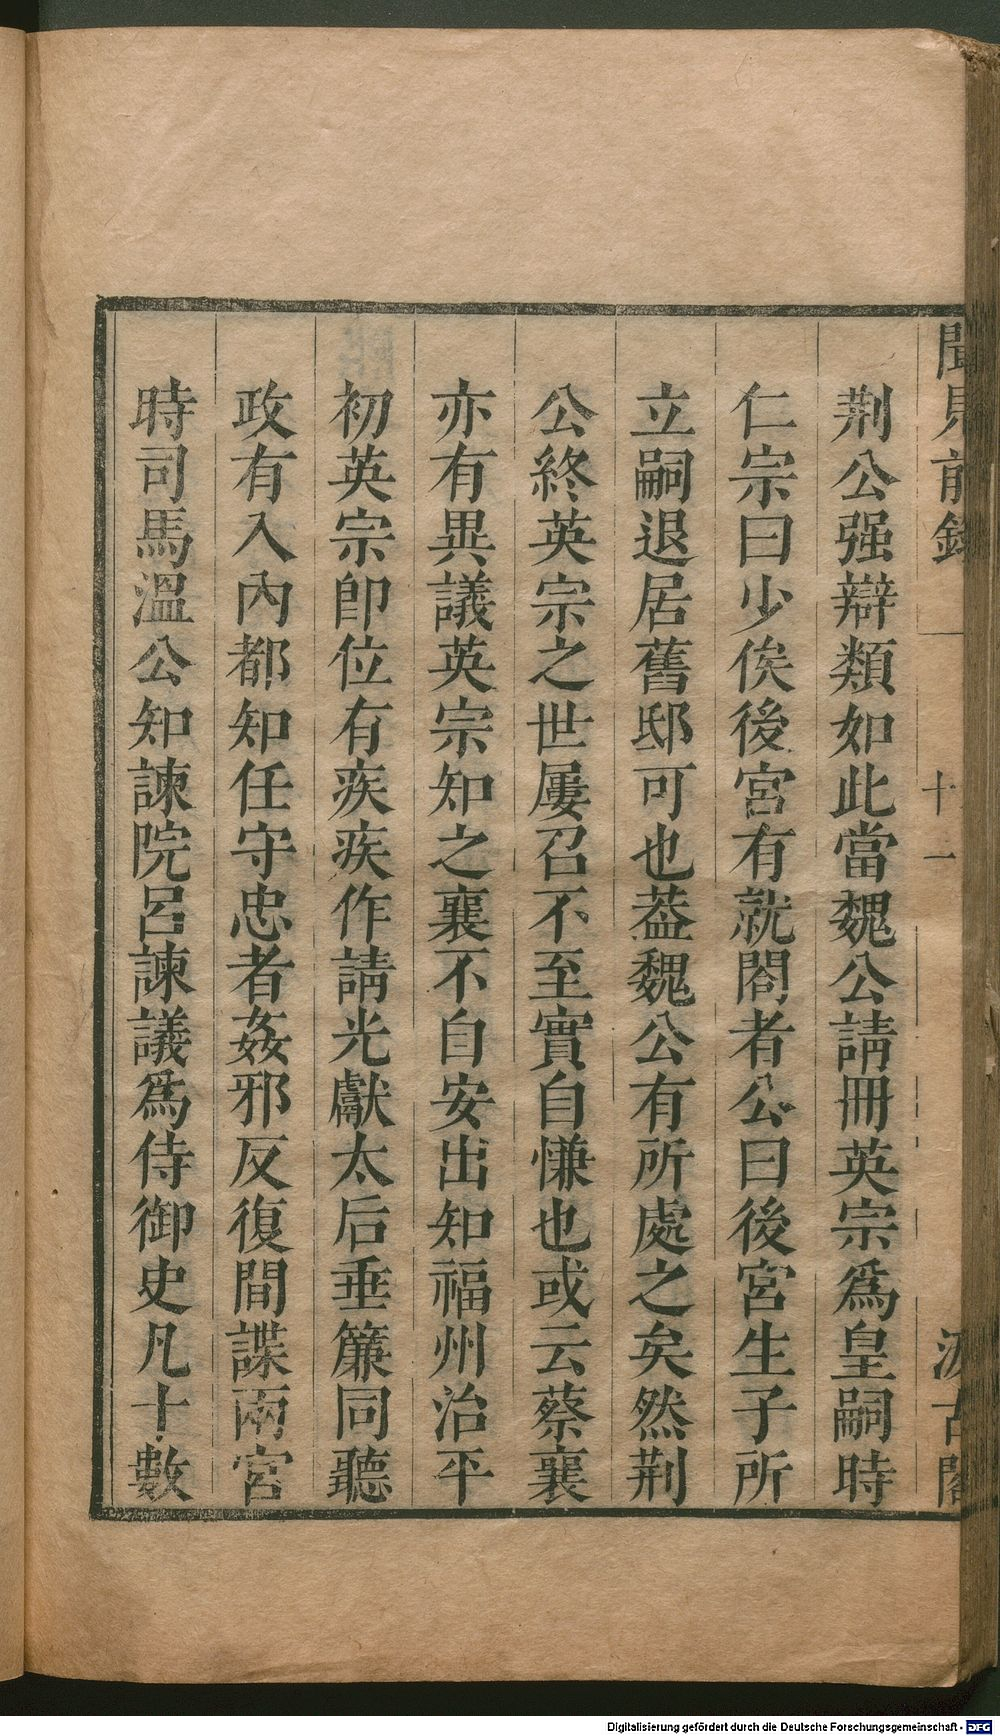 聞見前錄
十一
汲古閣
荆公强辯類如此當魏公請冊英宗爲皇嗣時
仁宗曰少俟後宮有就閤者公曰後宮生子所
立嗣退居舊邸可也葢魏公有所處之矣然荆
公終英宗之世屢召不至實自慊也或云蔡襄
亦有異議英宗知之襄不自安出知福州治平
初英宗卽位有疾疾作請光獻太后垂簾同聽
政有入內都知任守忠者姦邪反復間諜兩宮
時司馬溫公知諫院呂諫議爲侍御史凡十數
Digitalisierung gefördert durch die Deutsche Forschungsgemeinschaft - DFG